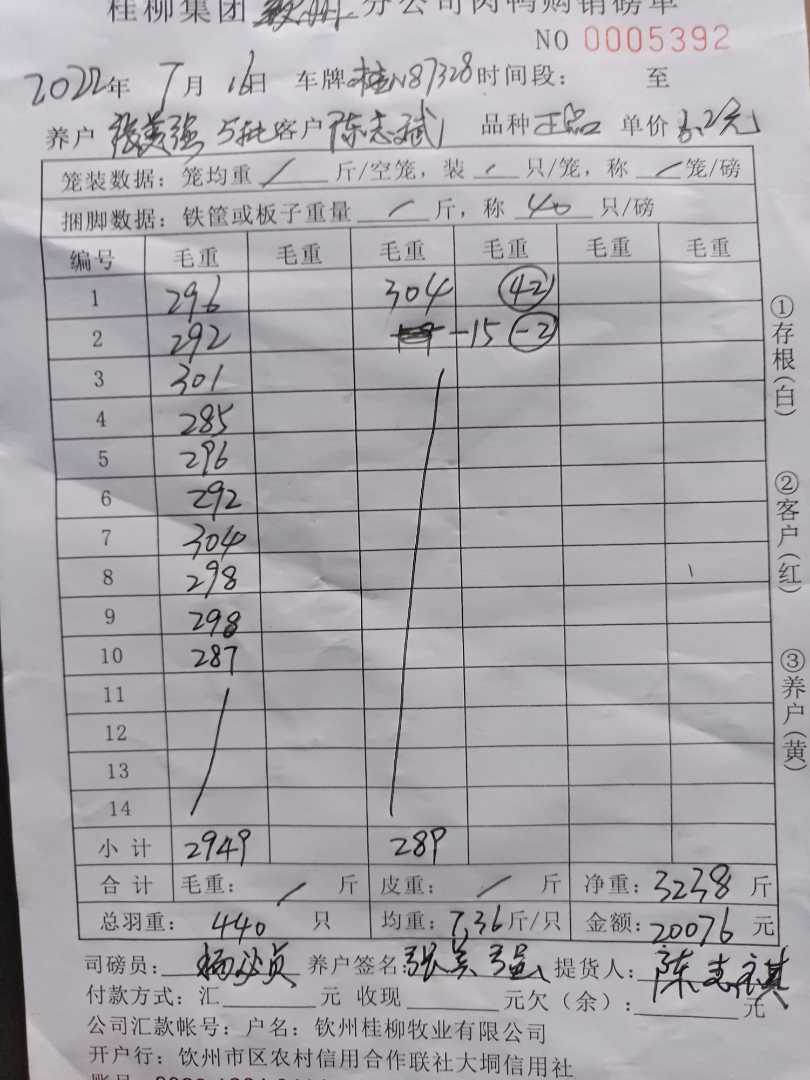 桂柳集团 钦州 分公司肉鸭购销磅单
NO 0005392
2022年 7月 16日 车牌:桂N87328 时间段: 至
养户 张美强 5批 客户 陈志斌 品种 正品 单价 6.2元
笼装数据:笼均重 / 斤/空笼,装 / 只/笼,称 / 笼/磅
捆脚数据:铁筐或板子重量 / 斤,称 40 只/磅
编号 毛重 毛重 毛重 毛重 毛重 毛重
1 296 304 42
2 292 -15 -2
3 301
4 285
5 296
6 292
7 304
8 298
9 298
10 287
11
12
13
14
小计 2949 289
合计 毛重: / 斤 皮重: / 斤 净重: 3238 斤
总羽重: 440 只 均重: 7.36 斤/只 金额: 20076 元
司磅员: 养户签名: 张美强 提货人: 陈志
付款方式:汇 元 收现 元欠(余): 元
公司汇款帐号:户名:钦州桂柳牧业有限公司
开户行:钦州市区农村信用合作联社大垌信用社
①存根(白)
②客户(红)
③养户(黄)